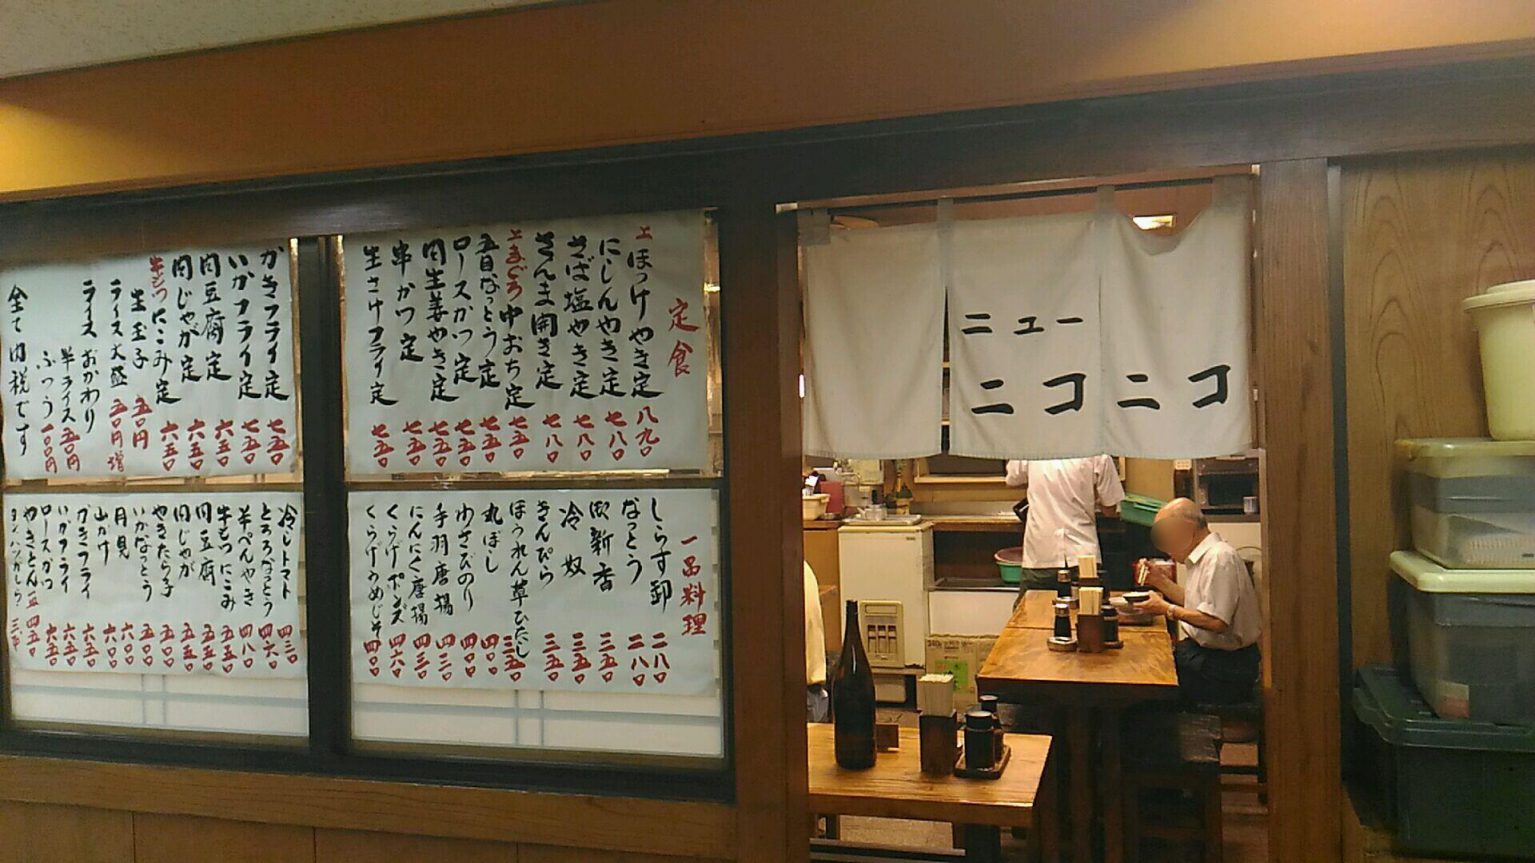 ニュー
ニコニコ
定食
上ほっけやき定 八九〇
にしんやき定 七八〇
さば塩やき定 七八〇
さんま開き定 七八〇
上まぐろ中おち定 七五〇
五目なっとう定 七五〇
ロースかつ定 七五〇
肉生姜やき定 七五〇
串かつ定 七五〇
生さけフライ定 七五〇
かきフライ定 七五〇
いかフライ定 七五〇
肉豆腐定 六五〇
肉じゃが定 六五〇
牛もつにこみ定 六五〇
生玉子 五〇円
ライス大盛 五〇円増
ライスおかわり
半ライス 五〇円
ふつう 一〇〇円
全て内税です
一品料理
しらす卸 二八〇
なっとう 二八〇
御新香 三五〇
冷奴 三五〇
きんぴら 三五〇
ほうれん草ひたし 三五〇
丸ぼし 四〇〇
わさびのり 四〇〇
手羽唐揚 四三〇
にんにく唐揚 四三〇
くらげポンズ 四六〇
くらげうめじそ 四〇〇
冷しトマト 四三〇
とろろなっとう 四六〇
羊ぺんやき 四八〇
牛もつにこみ 五五〇
肉豆腐 五五〇
肉じゃが 五五〇
やきたら子 五〇〇
いかなっとう 五〇〇
月見 六〇〇
山かけ 六〇〇
かきフライ 六五〇
いかフライ 六五〇
ロースかつ 六五〇
やきとん 四五〇